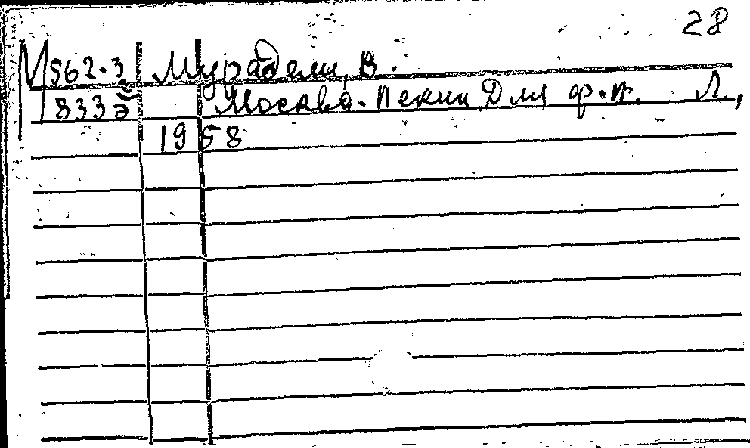 28
М562.3 Мурадели, В.
1833 Москва-Пекин Для ф.п. Л,
1958